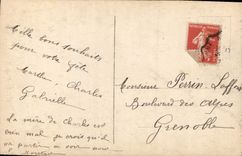 Mille bons souhaits
pour votre fête
Marthe - Charles
Gabrielle
La mère de Charles est
bien mal, on croit qu'il
va partir
Monsieur Perrin-Laffon
Boulevard des Alpes
Grenoble